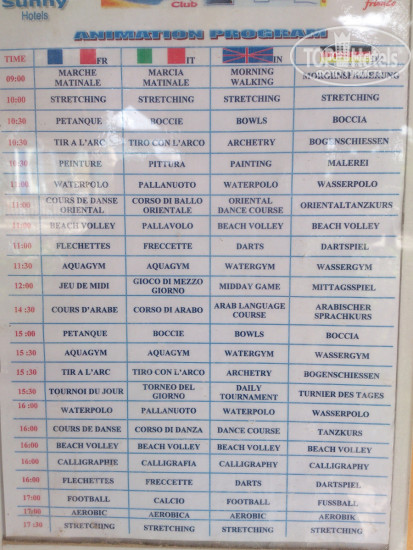 Sunny
Hotels
Club
france
ANIMATION PROGRAM
TopHotels
TIME FR IT IN
09:00 MARCHE MATINALE MARCIA MATINALE MORNING WALKING
10:00 STRETCHING STRETCHING STRETCHING STRETCHING
10:30 PETANQUE BOCCIE BOWLS BOCCIA
10:30 TIR A L'ARC TIRO CON L'ARCO ARCHETRY BOGENSCHIESSEN
10:30 PEINTURE PITTURA PAINTING MALEREI
11:00 WATERPOLO PALLANUOTO WATERPOLO WASSERPOLO
11:00 COURS DE DANSE ORIENTAL CORSO DI BALLO ORIENTALE ORIENTAL DANCE COURSE ORIENTALTANZKURS
11:00 BEACH VOLLEY PALLAVOLO BEACH VOLLEY BEACH VOLLEY
11:00 FLECHETTES FRECCETTE DARTS DARTSPIEL
11:30 AQUAGYM AQUAGYM WATERGYM WASSERGYM
12:00 JEU DE MIDI GIOCO DI MEZZO GIORNO MIDDAY GAME MITTAGSSPIEL
14:30 COURS D'ARABE CORSO DI ARABO ARAB LANGUAGE COURSE ARABISCHER SPRACHKURS
15:00 PETANQUE BOCCIE BOWLS BOCCIA
15:30 AQUAGYM AQUAGYM WATERGYM WASSERGYM
15:30 TIR A L'ARC TIRO CON L'ARCO ARCHETRY BOGENSCHIESSEN
15:30 TOURNOI DU JOUR TORNEO DEL GIORNO DAILY TOURNAMENT TURNIER DES TAGES
16:00 WATERPOLO PALLANUOTO WATERPOLO WASSERPOLO
16:00 COURS DE DANSE CORSO DI DANZA DANCE COURSE TANZKURS
16:00 BEACH VOLLEY BEACH VOLLEY BEACH VOLLEY BEACH VOLLEY
16:00 CALLIGRAPHIE CALLIGRAFIA CALLIGRAPHY CALLIGRAPHY
16:00 FLECHETTES FRECCETTE DARTS DARTSPIEL
17:00 FOOTBALL CALCIO FOOTBALL FUSSBALL
17:00 AEROBIC AEROBICA AEROBIC AEROBIK
17:30 STRETCHING STRETCHING STRETCHING STRETCHING